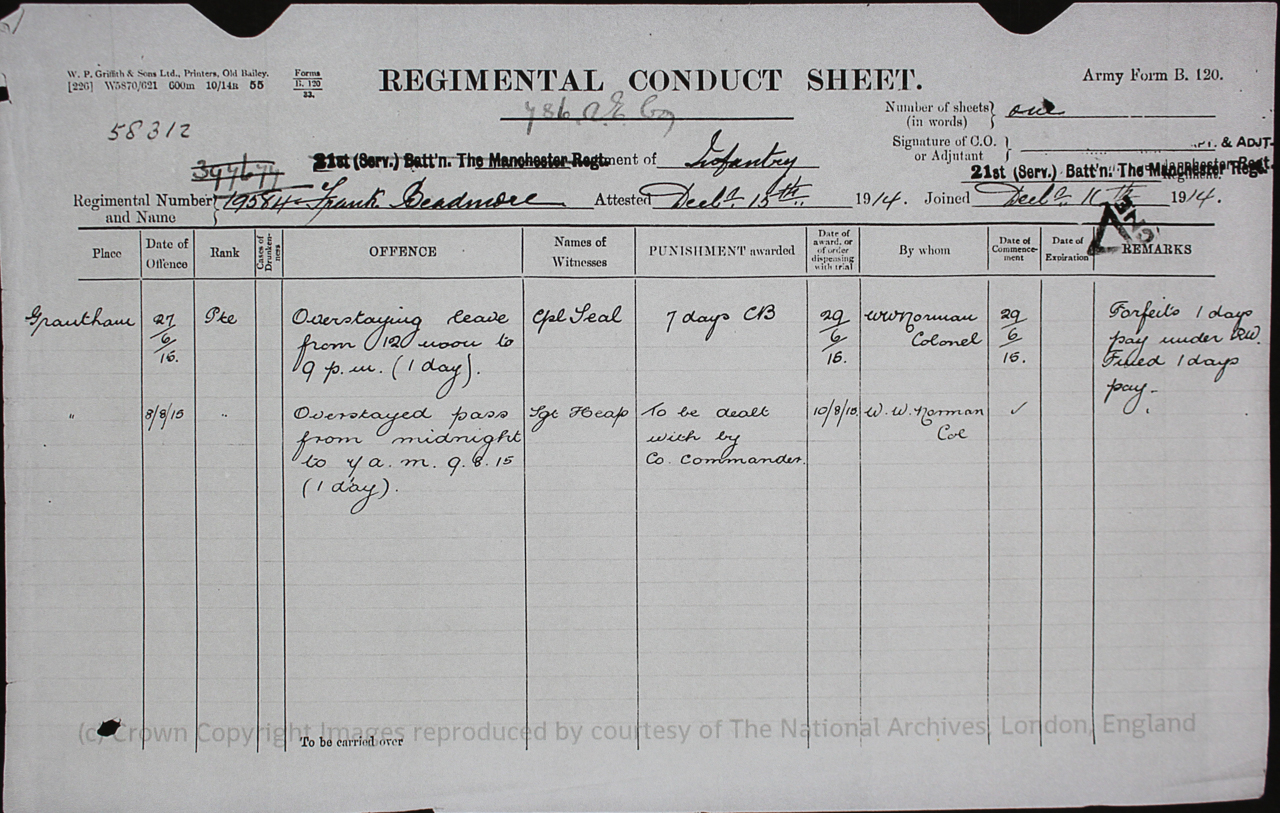 W. P. Griffith & Sons Ltd., Printers, Old Bailey.
[226] W5870/621 600m 10/14R 55
Forms
B. 120
33.
REGIMENTAL CONDUCT SHEET.
Army Form B. 120.
Number of sheets
(in words)
one
58312
Signature of C.O.
or Adjutant
& ADJT.
21st (Serv.) Batt'n. The Manchester Regt.
ment of Infantry
21st (Serv.) Batt'n. The Manchester Regt.
Regimental Number
and Name
19584 Frank Beadmore
Attested Decbr. 15th. 1914. Joined Decbr. 1914.
Place
Date of
Offence
Rank
Cases of
Drunken-
ness
OFFENCE
Names of
Witnesses
PUNISHMENT awarded
Date of
award, or
of order
dispensing
with trial
By whom
Date of
Commence-
ment
Date of
Expiration
REMARKS
Grantham
27
6
15.
Pte
Overstaying leave
from 12 noon to
9 p.m. (1 day).
Cpl Seal
7 days CB
29
6
15.
WWNorman
Colonel
29
6
15.
Forfeits 1 days
pay under RW.
Fined 1 days
pay.
"
8/8/15
"
Overstayed pass
from midnight
to 7 a.m. 9.8.15
(1 day).
Sgt Heap
To be dealt
with by
Co. Commander.
10/8/15.
W. W. Norman
Col
✓
To be carried over
(c) Crown Copyright Images reproduced by courtesy of The National Archives, London, England